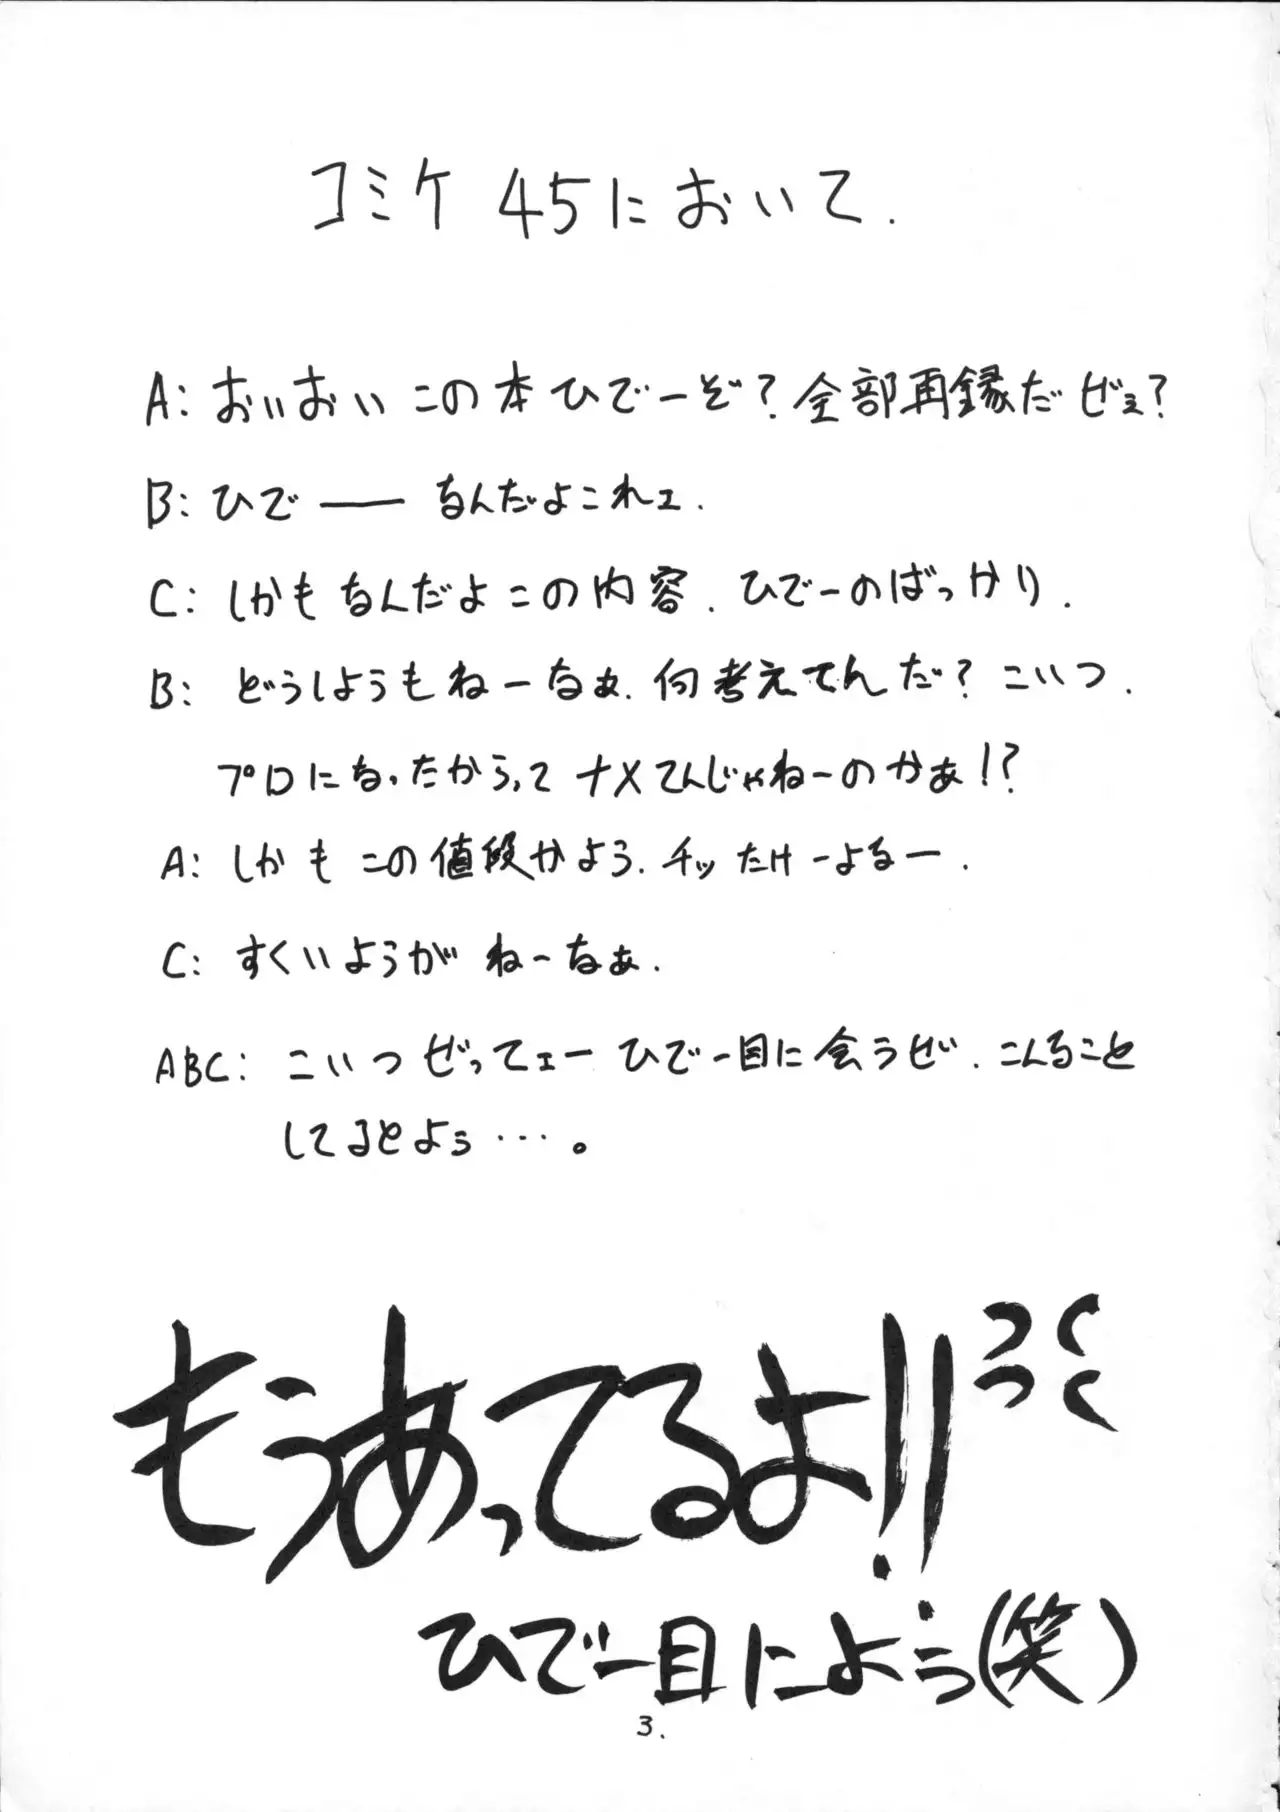 コミケ 45において.
A: おいおい この本ひでーぞ? 全部再録だぜぇ?
B: ひで―― なんだよこれェ.
C: しかもなんだよこの内容. ひでーのばっかり.
B: どうしようもねーなぁ. 何考えてんだ? こいつ.
プロになったからって ナメてんじゃねーのかぁ!?
A: しかも この値段かよう. チッ たけーよなー.
C: すくいようが ねーなぁ.
ABC: こいつ ぜってェー ひでー目に会うぜ. こんなこと
してるとよぅ…。
もうあってるよ!!
ひでー目によう(笑)
3.